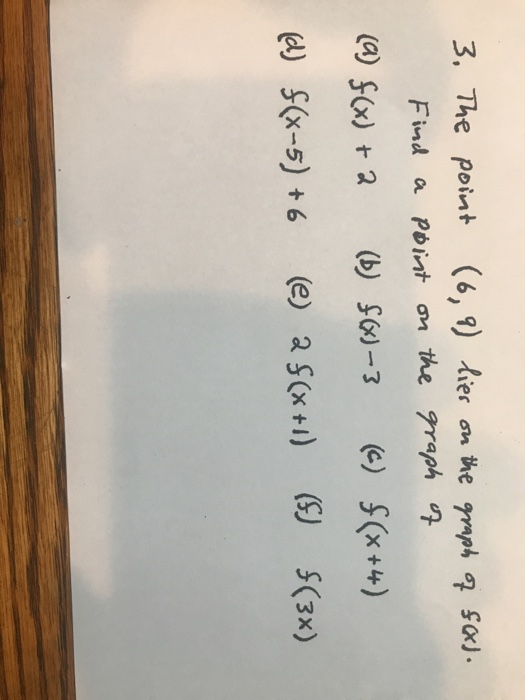 3. The point (6, 9) lies on the graph of f(x).
Find a point on the graph of
(a) f(x) + 2 (b) f(x) - 3 (c) f(x+4)
(d) f(x-5) + 6 (e) 2 f(x+1) (f) f(3x)